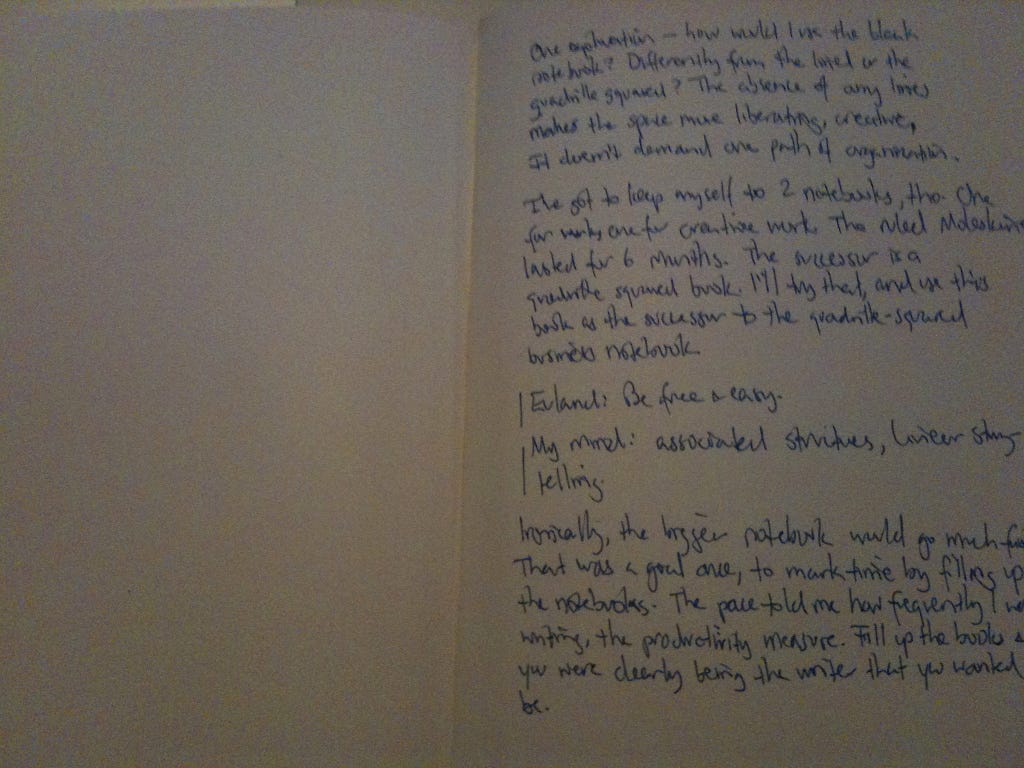 One exploration – how would I use the blank
notebook? Differently from the lined or the
quadrille squared? The absence of any lines
makes the space more liberating, creative,
It doesn't demand one path of organization.
I've got to keep myself to 2 notebooks, tho. One
for work, one for creative work. The ruled Moleskine
lasted for 6 months. The successor is a
quadrille squared book. I'll try that, and use this
book as the successor to the quadrille-squared
business notebook.
Be free & easy.
My mind: associated structures, linear story-
telling.
Ironically, the bigger notebook would go much
That was a goal once, to mark time by filling up
the notebooks. The pace told me how frequently I
writing, the productivity measure. Fill up the books &
you were clearly being the writer that you wanted
be.